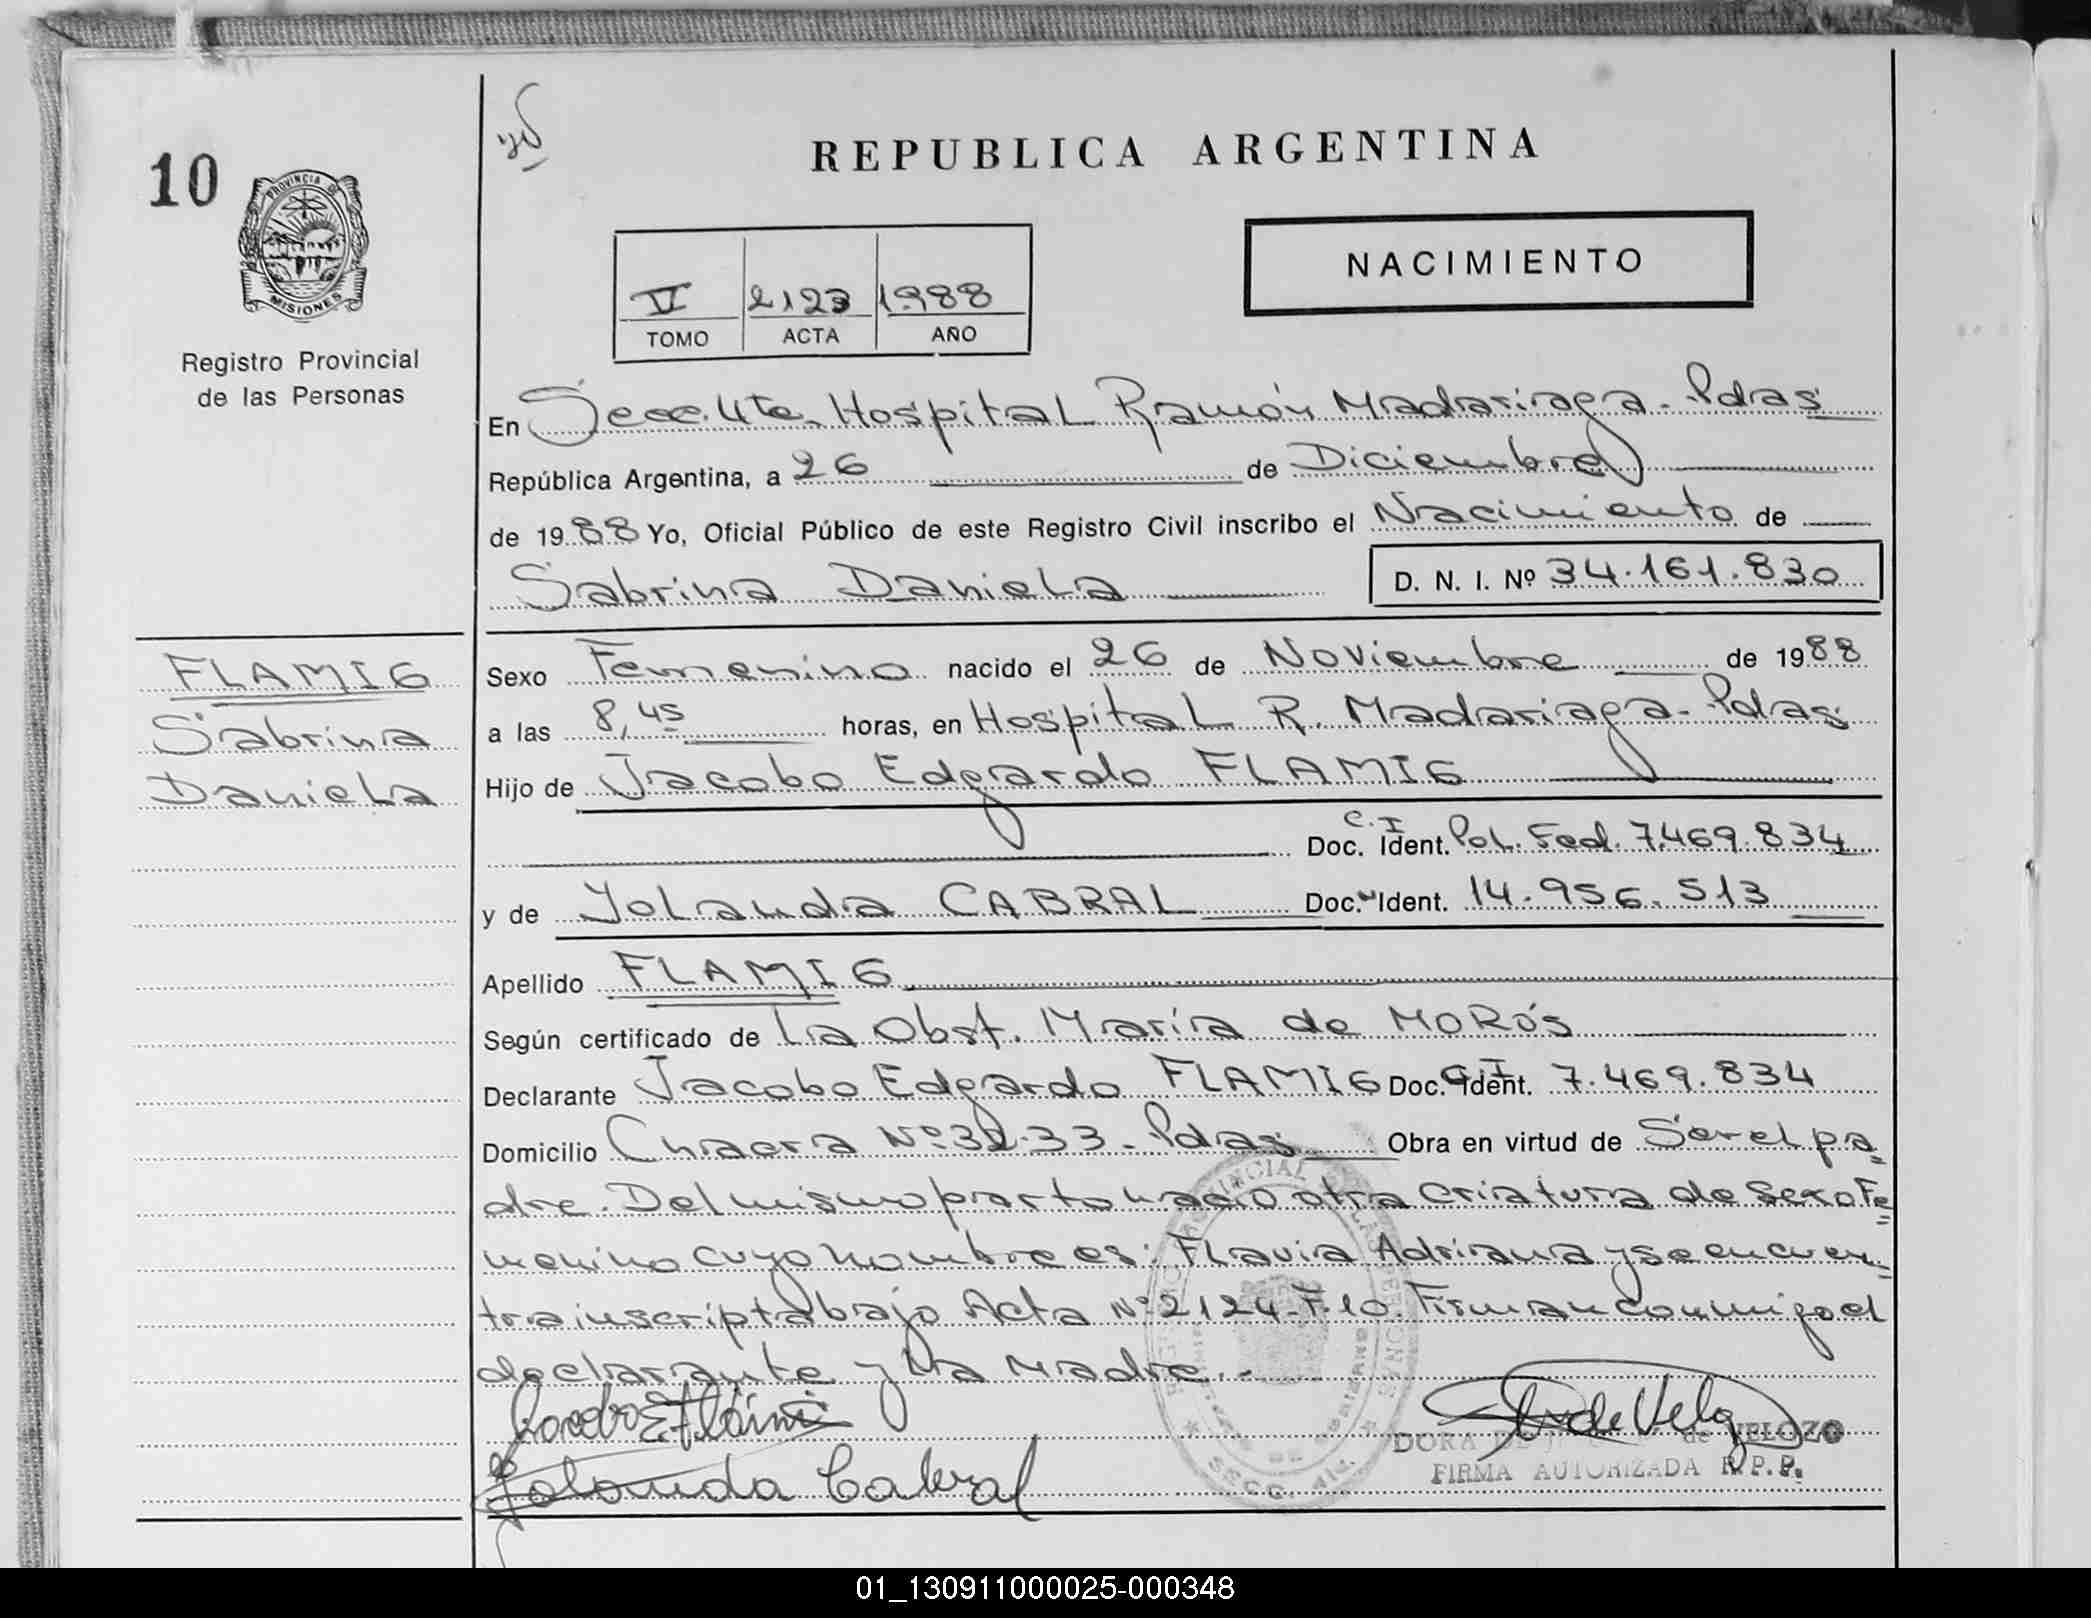 10
REPUBLICA ARGENTINA
PROVINCIA DE
MISIONES
Registro Provincial
de las Personas
NACIMIENTO
V 2123 1988
TOMO ACTA AÑO
En Secc. 4ta. Hospital Ramón Madariaga - Pdas
República Argentina, a 26 de Diciembre
de 1988 Yo, Oficial Público de este Registro Civil inscribo el Nacimiento de
Sabrina Daniela D. N. I. Nº 34.161.830
FLAMIG
Sabrina
Daniela
Sexo Femenino nacido el 26 de Noviembre de 1988
a las 8,45 horas, en Hospital R. Madariaga - Pdas
Hijo de Jacobo Edgardo FLAMIG
C.I
Doc. Ident. Pol. Fed. 7.469.834
y de Yolanda CABRAL Doc. Ident. 14.956.513
Apellido FLAMIG
Según certificado de La Obst. María de MORÓS
Declarante Jacobo Edgardo FLAMIG Doc. C.I Ident. 7.469.834
Domicilio Chacra Nº 32-33 - Pdas Obra en virtud de Ser el pa=
dre. Del mismo parto nacio otra criatura de sexo Fe=
menino cuyo nombre es: Flavia Adriana y se encuen=
tra inscripta bajo Acta Nº 2124-F.10. Firman conmigo el
declarante y La Madre.-
Jacobo E. Flamig
Yolanda Cabral
DORA DE de VELOZO
FIRMA AUTORIZADA R.P.P.
SECC. 4ta.
01_130911000025-000348